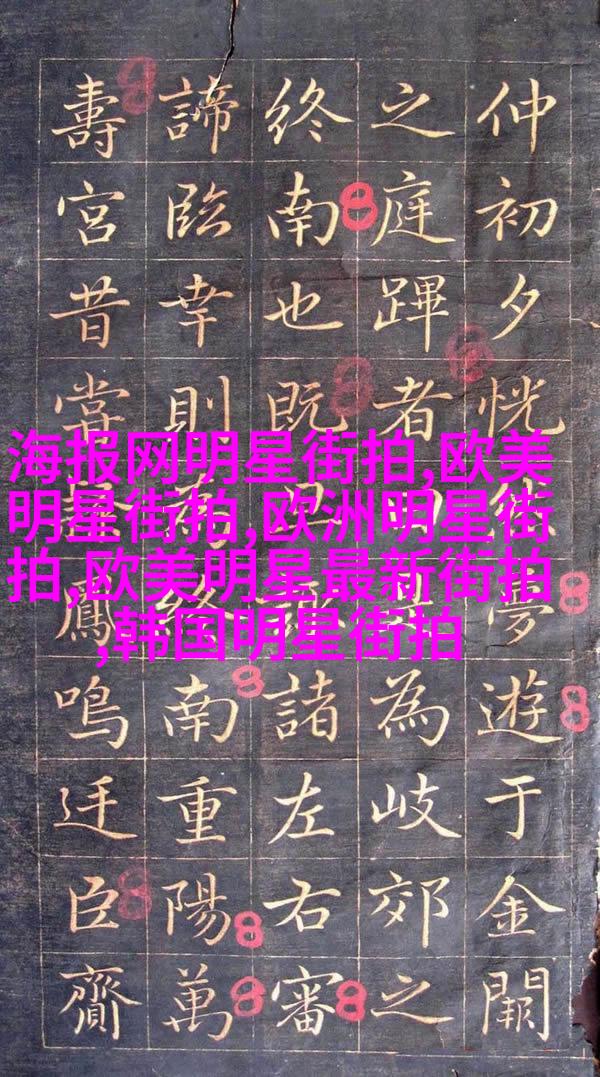 仲初夕恍夢遊于金闕
之庭蹕者為岐郊之
終南也既諸左右審
諦臨幸則終南重陽萬
壽宮昔甞鳳鳴廷臣齎
海报网明星街拍,欧美
明星街拍,欧洲明星街
拍,欧美明星最新街拍
,韩国明星街拍